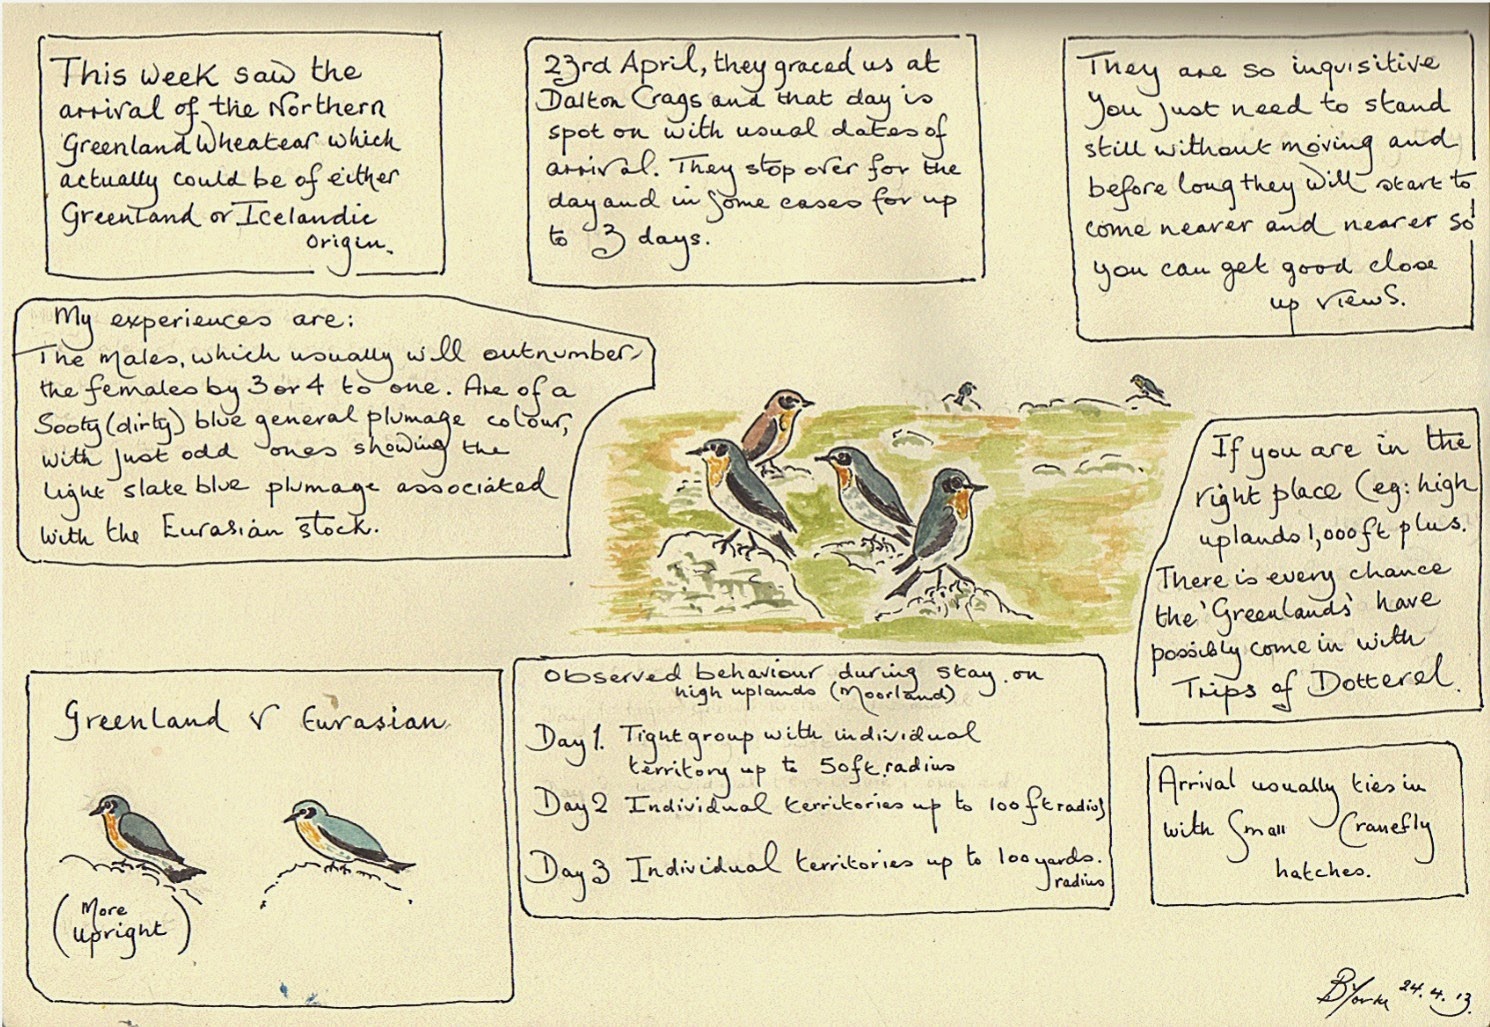 This week saw the
arrival of the Northern
Greenland Wheatear which
actually could be of either
Greenland or Icelandic
Origin.
23rd April, they graced us at
Dalton Crags and that day is
spot on with usual dates of
arrival. They stop over for the
day and in some cases for up
to 3 days.
They are so inquisitive
you just need to stand
still without moving and
before long they will start to
come nearer and nearer so
you can get good close
up views.
My experiences are:
The males, which usually will outnumber
the females by 3 or 4 to one. Are of a
Sooty (dirty) blue general plumage colour,
with just odd ones showing the
light slate blue plumage associated
with the Eurasian stock.
If you are in the
right place (eg: high
uplands 1,000ft plus.
There is every chance
the 'Greenlands' have
possibly come in with
Trips of Dotterel.
Greenland v Eurasian
(More
Upright)
Observed behaviour during stay on
high uplands (Moorland)
Day 1. Tight group with individual
territory up to 50ft. radius
Day 2 Individual territories up to 100ft radius
Day 3 Individual territories up to 100 yards.
radius
Arrival usually ties in
with Small Cranefly
hatches.
B Yorke 24.4.13.